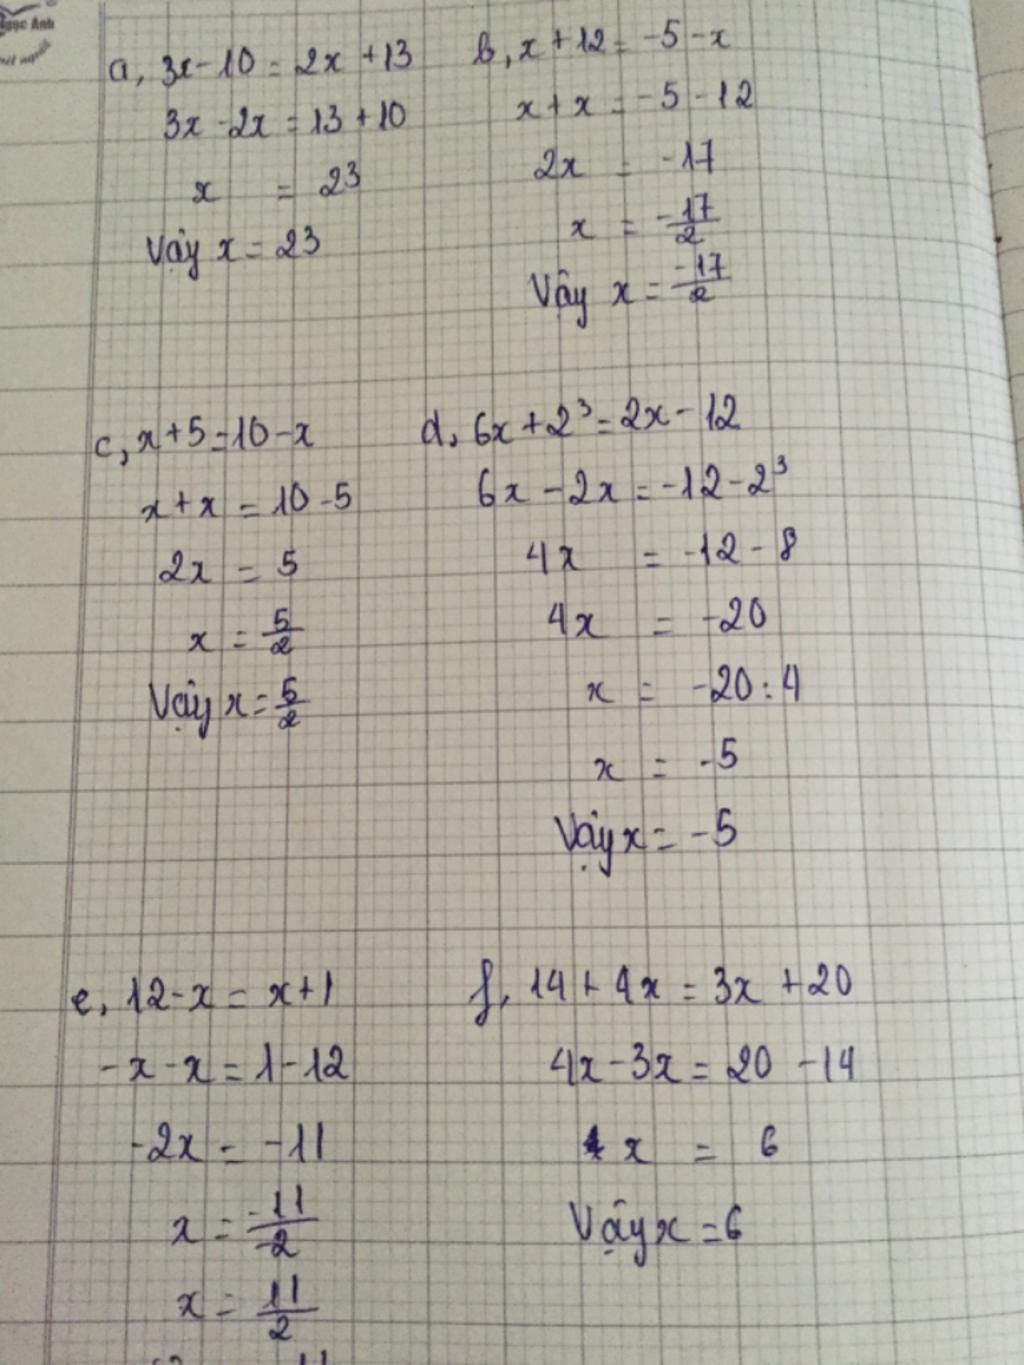 Ngọc Anh
a, 3x - 10 = 2x + 13
3x - 2x = 13 + 10
x = 23
Vậy x = 23
b, x + 12 = -5 - x
x + x = -5 - 12
2x = -17
x = -17/2
Vậy x = -17/2
c, x + 5 = 10 - x
x + x = 10 - 5
2x = 5
x = 5/2
Vậy x = 5/2
d, 6x + 2³ = 2x - 12
6x - 2x = -12 - 2³
4x = -12 - 8
4x = -20
x = -20 : 4
x = -5
Vậy x = -5
e, 12 - x = x + 1
-x - x = 1 - 12
-2x = -11
x = -11/-2
x = 11/2
f, 14 + 4x = 3x + 20
4x - 3x = 20 - 14
x = 6
Vậy x = 6